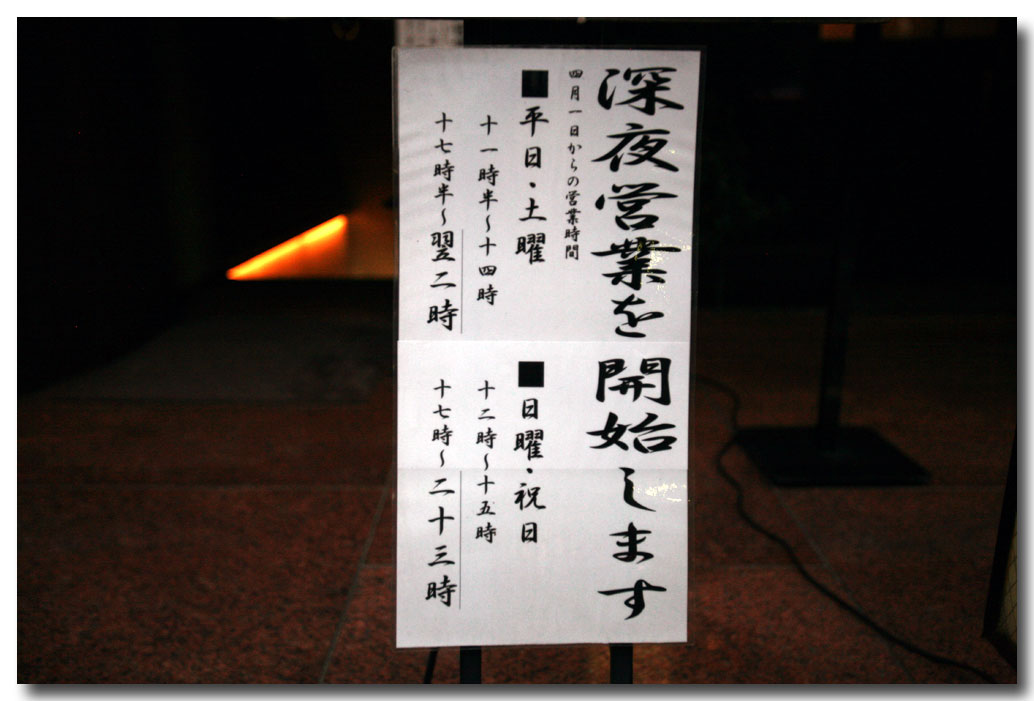 深夜営業を開始します
四月一日からの営業時間
■平日・土曜
十一時半～十四時
十七時半～翌二時
■日曜・祝日
十二時～十五時
十七時～二十三時